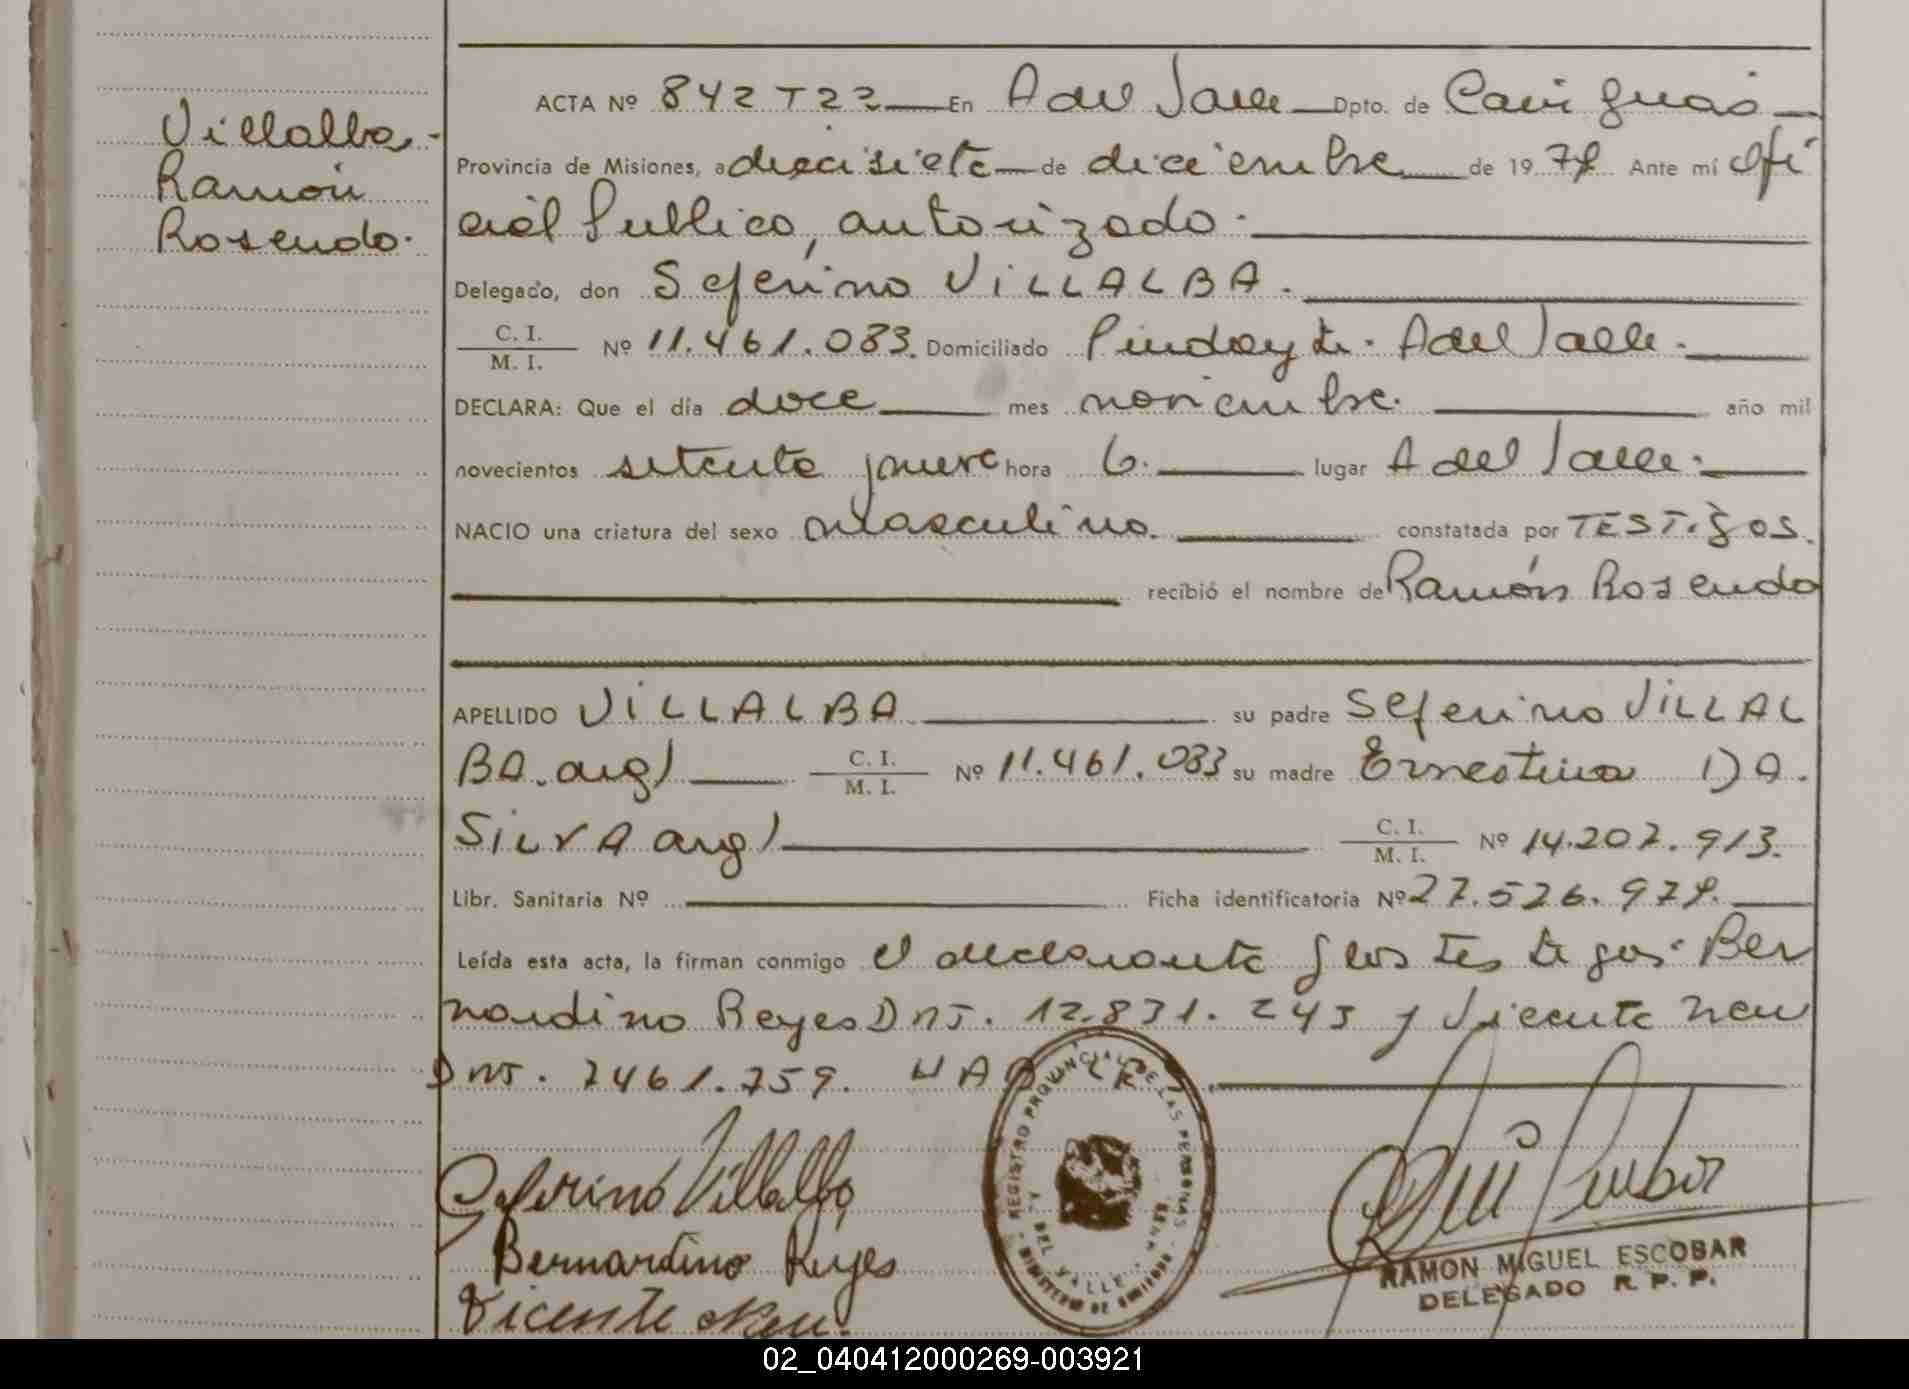 Villalba
Ramón
Rosendo.
ACTA Nº 842 T 22 En A del Valle Dpto. de Cainguás
Provincia de Misiones, a diecisiete de diciembre de 1979 Ante mí Ofi
cial Publico, autorizado.
Delegado, don Seferino VILLALBA.
C. I.
M. I. Nº 11.461.083. Domiciliado Pindayti. A del Valle.
DECLARA: Que el día doce mes noviembre. año mil
novecientos setenta y nueve hora 6. lugar A del Valle.
NACIO una criatura del sexo masculino. constatada por TESTigos.
recibió el nombre de Ramón Rosendo
APELLIDO VILLALBA su padre Seferino VILLAL
BA. arg) C. I.
M. I. Nº 11.461.083 su madre Ernestina DA
SILVA arg) C. I.
M. I. Nº 14.207.913.
Libr. Sanitaria Nº Ficha identificatoria Nº 27.526.979.
Leída esta acta, la firman conmigo el declarante y los testigos. Ber
nardino Reyes DNI. 12.831.243 y Vicente Neu
DNI. 7461.759.
REGISTRO PROVINCIAL DE LAS PERSONAS
DEL VALLE
MINISTERIO DE GOBIERNO
Seferino Villalba
Bernardino Reyes
Vicente Neu.
RAMON MIGUEL ESCOBAR
DELEGADO R. P. P.
02_040412000269-003921